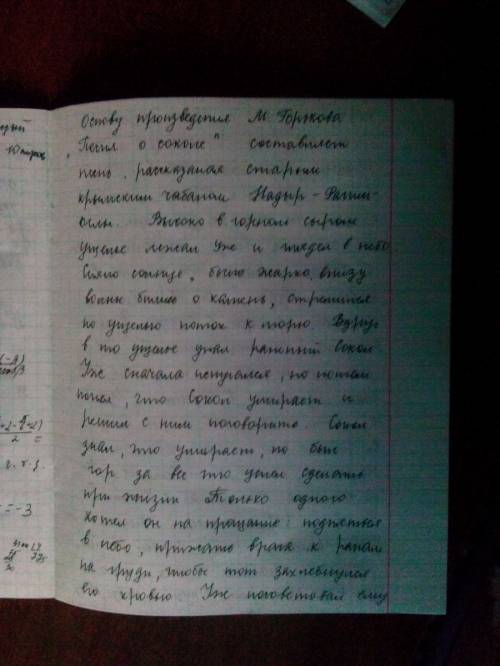 Основу произведения М. Горькова
„Песня о соколе" составляет
песнь, рассказаная старым
крымским чабаном Надыр-Рагим-
Оглы. Высоко в горном сыром
ущелье лежал Уж и глядел в небо.
Сияло солнце, было жарко, внизу
волны бились о камень, стремился
по ущелью поток к морю. Вдруг
в то ущелье упал раненный Сокол.
Уж сначала испугался, но потом
понял, что Сокол умирает и
решил с ним поговорить. Сокол
знал, что умирает, но был
гор за все что успел сделать
при жизни Только одного
хотел он на прощание: подняться
в небо, прижать врага к ранам
на груди, чтобы тот захлебнулся
его кровью. Уж посоветовал ему
2
= -3